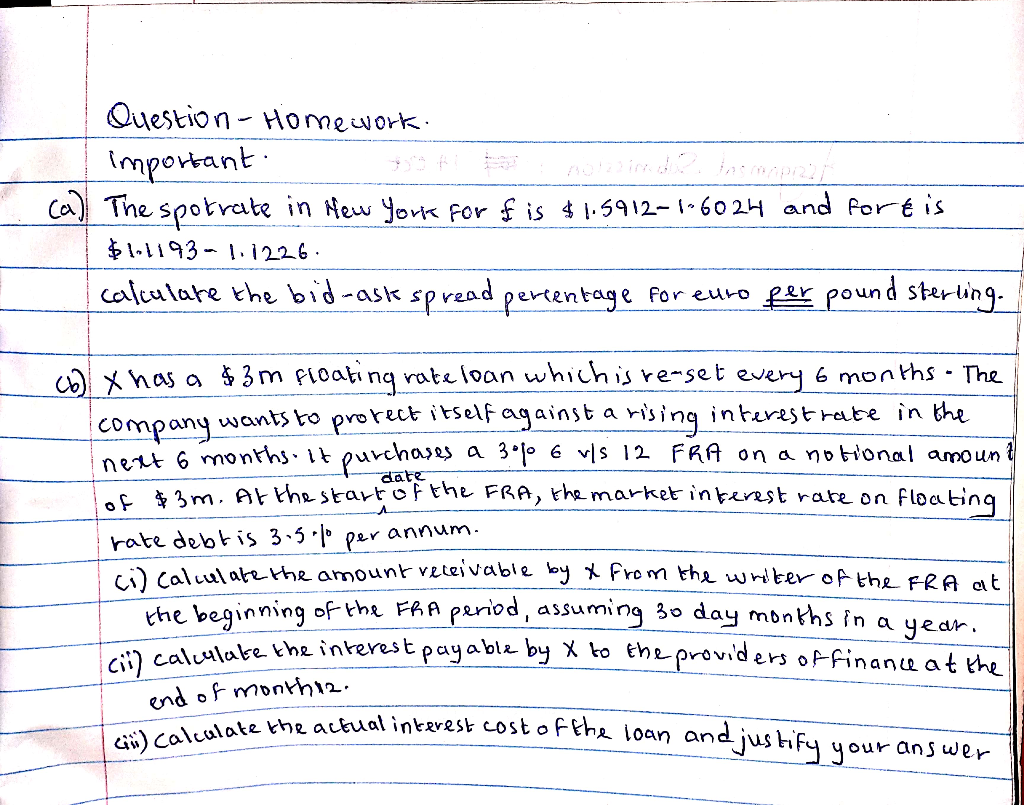 Question - Homework.
important.
(a) The spotrate in New York for £ is $1.5912-1.6024 and for € is
$1.1193-1.1226.
calculate the bid-ask spread percentage for euro per pound sterling.
(b) X has a $3m floating rate loan which is re-set every 6 months. The
company wants to protect itself against a rising interest rate in the
next 6 months. It purchases a 3% 6 v/s 12 FRA on a notional amount
of $3m. At the start date of the FRA, the market interest rate on floating
rate debt is 3.5% per annum.
(i) Calculate the amount receivable by X from the writer of the FRA at
the beginning of the FRA period, assuming 30 day months in a year.
(ii) calculate the interest payable by X to the providers of finance at the
end of month 12.
(iii) Calculate the actual interest cost of the loan and justify your answer